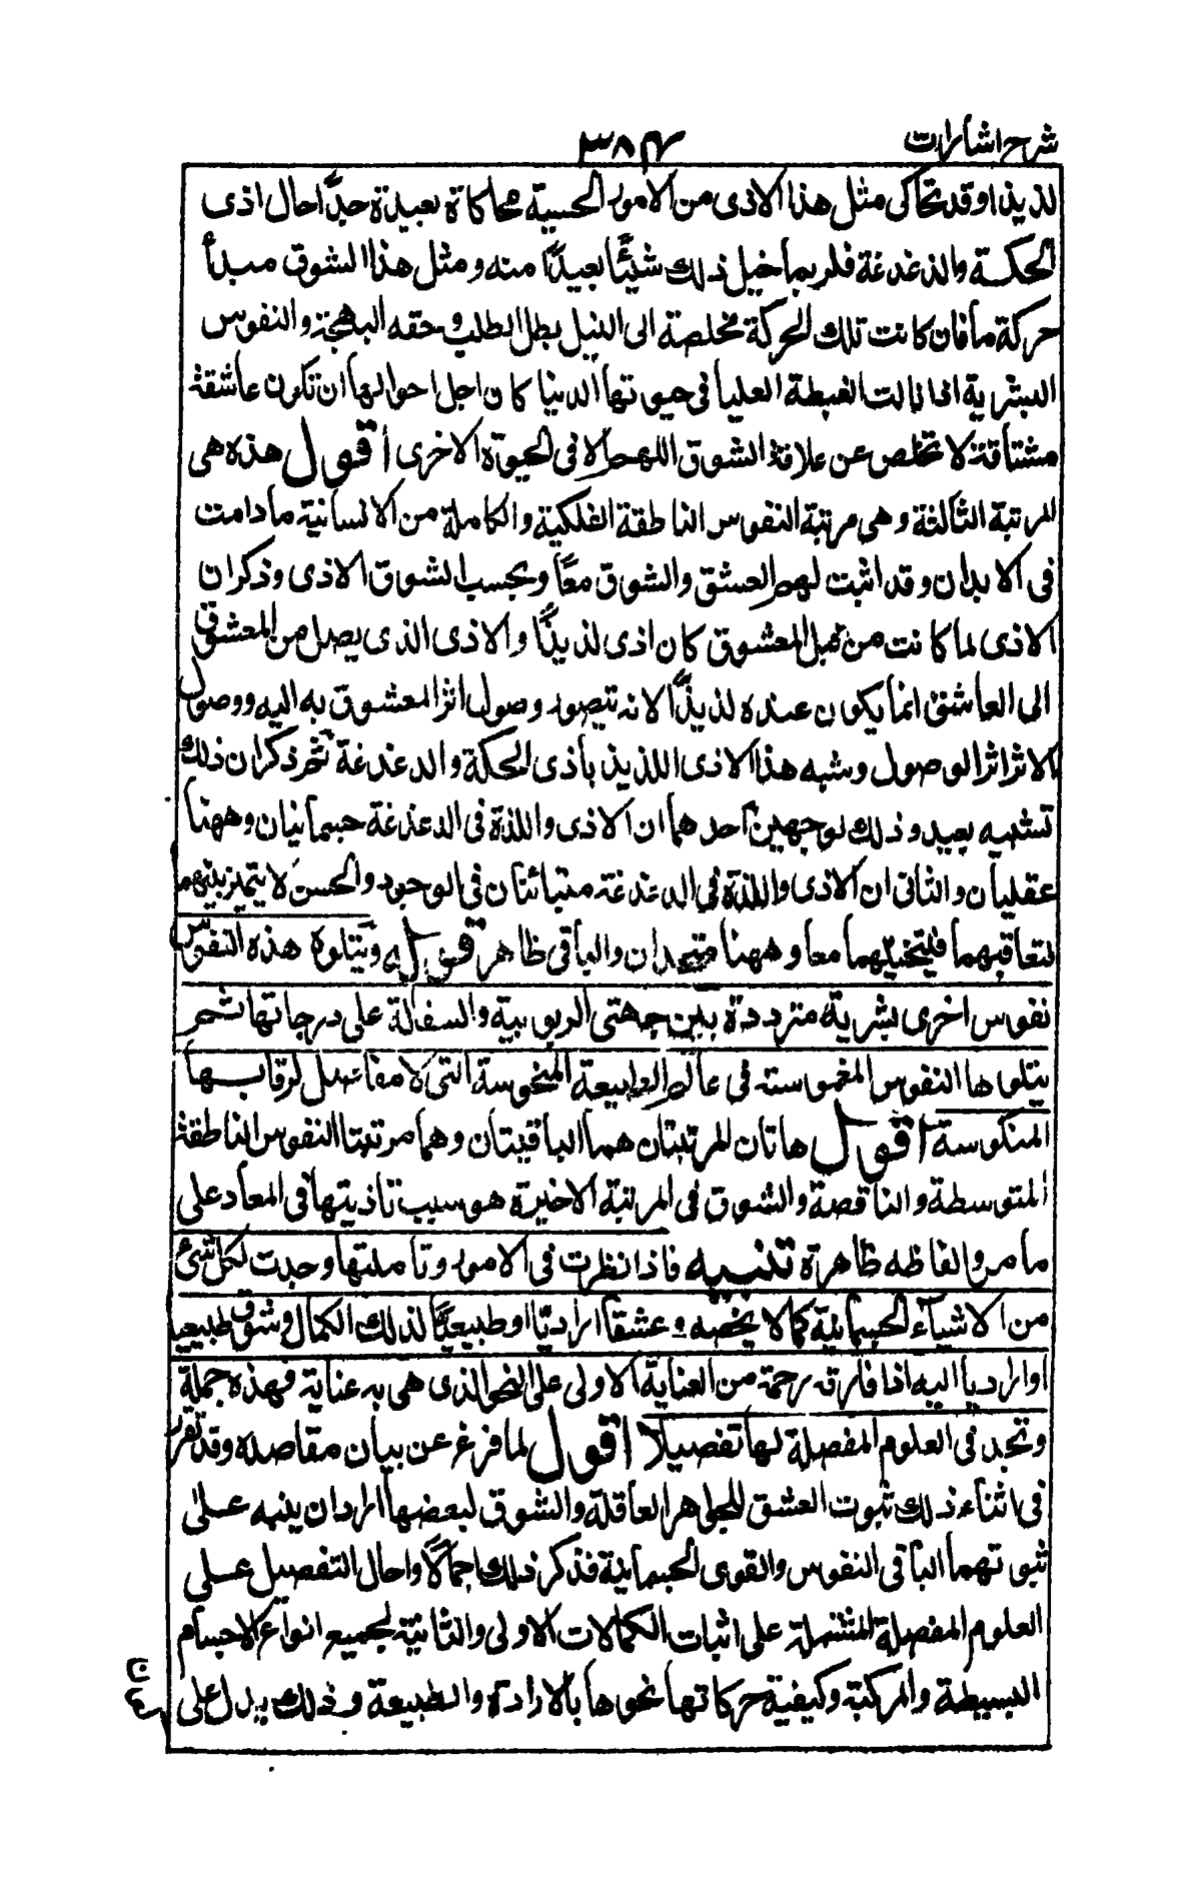 شرح اشارات
٣٨٤
لذيذا وقد تحاكى مثل هذا الاذى من الامور الحسية محاكاة بعيدة جدًّا حال اذى
الحكة والدغدغة فلربما خيل ذلك شيئًا بعيدًا منه ومثل هذا الشوق مبدأ
حركة ما فان كانت تلك الحركة مخلصة الى النيل بطل الطلب وحقه البهجة والنفوس
البشرية اذا نالت الغبطة العليا فى حيوتها الدنيا كان اجل احوالها ان تكون عاشقة
مشتاقة لا تخلص عن علاقة الشوق اللهم الا فى الحيوة الاخرى أقول هذه هى
المرتبة الثالثة وهى مرتبة النفوس الناطقة الفلكية والكاملة من الانسانية ما دامت
فى الابدان وقد اثبت لهم العشق والشوق معًا وبحسب الشوق الاذى وذكر ان
الاذى لما كانت من قبل المعشوق كان اذى لذيذًا والاذى الذى يصل من المعشوق
الى العاشق انما يكون عنده لذيذًا لانه تتصور وصول اثر المعشوق به اليه ووصول
الاثر اثر الوصول وشبه هذا الاذى اللذيذ باذى الحكة والدغدغة ثم ذكر ان ذلك
تشبيه بعيد وذلك لوجهين احدهما ان الاذى واللذة فى الدغدغة جسمانيان وههنا
عقليان والثانى ان الاذى واللذة فى الدغدغة متبائنان فى الوجود والحسن لا يتميز بينهما
لتعاقبهما فيتخيلهما معا وههنا متحدان والباقى ظاهر قوله ويتلوه هذه النفوس
نفوس اخرى بشرية مترددة بين جهتى الربوبية والسفالة على درجاتها ثم
يتلوها النفوس المغموسة فى عالم الطبيعة المنحوسة التى لا مفاصل لرقابها
المنكوسة أقول هاتان المرتبتان هما الباقيتان وهما مرتبتا النفوس الناطقة
المتوسطة والناقصة والشوق فى المرتبة الاخيرة هو سبب تاذيتها فى المعاد على
ما مر والفاظه ظاهرة تنبيه فاذا نظرت فى الامور وتاملتها وجدت لكل شئ
من الاشياء الجسمانية كمالا يخصه وعشقا اراديًّا او طبيعيًّا لذلك الكمال وشوق طبيعيا
او اراديا اليه اذا فارقه رحمة من العناية الاولى على النحو الذى هى به عناية فهذه جملة
وتجد فى العلوم المفصلة لها تفصيلا اقول لما فرغ عن بيان مقاصده وقد تقرر
فى اثناء ذلك ثبوت العشق للجواهر العاقلة والشوق لبعضها اراد ان ينبه على
ثبوتهما لباقى النفوس والقوى الجسمانية فذكر ذلك اجمالًا واحال التفصيل على
العلوم المفصلة المشتملة على اثبات الكمالات الاولى والثانية لجميع انواع الاجسام
البسيطة والمركبة وكيفية حركاتها نحوها بالارادة والطبيعة وذلك يدل على